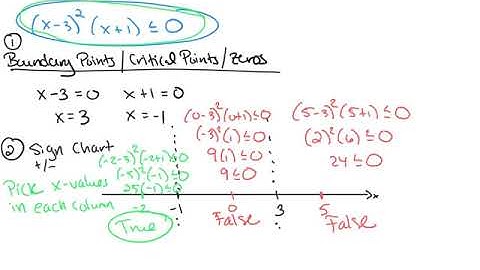 (x-3)² (x+1) ≤ 0
① Boundary Points / Critical Points / Zeros
x-3=0 x+1=0
x=3 x=-1
② Sign Chart
+/-
Pick x-values
in each column
(-2-3)²(-2+1)≤0
(-5)²(-1)≤0
25(-1)≤0
(0-3)²(0+1)≤0
(-3)²(1)≤0
9(1)≤0
9≤0
(5-3)²(5+1)≤0
(2)²(6)≤0
24≤0
-2 -1 0 3 5 x
True False False